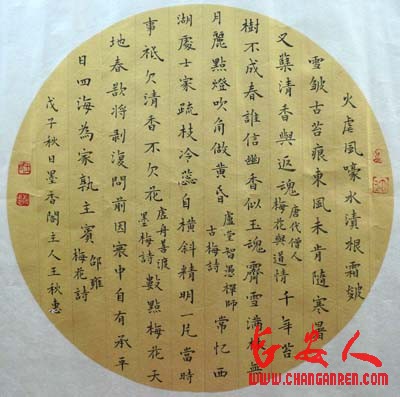 火虐風嚎水漬根霜皴
雪皺古苔痕東風未肯隨寒暑
又蘖清香與返魂 唐代僧人 梅花與道情 千年苔
樹不成春誰信幽香似玉魂霽雪滿林無
月麗點燈吹角做黄昏 虛堂智愚禪師 古梅詩 常忆西
湖處士家疏枝冷蕊自横斜精明一片當時
事祇欠清香不欠花 虛舟普渡 墨梅詩 數點梅花天
地春欲將剥復問前因寰中自有承平
日四海為家孰主賓 邵雍 梅花詩
戊子秋日墨香閣主人王秋惠
长安人
WWW.CHANGANREN.COM